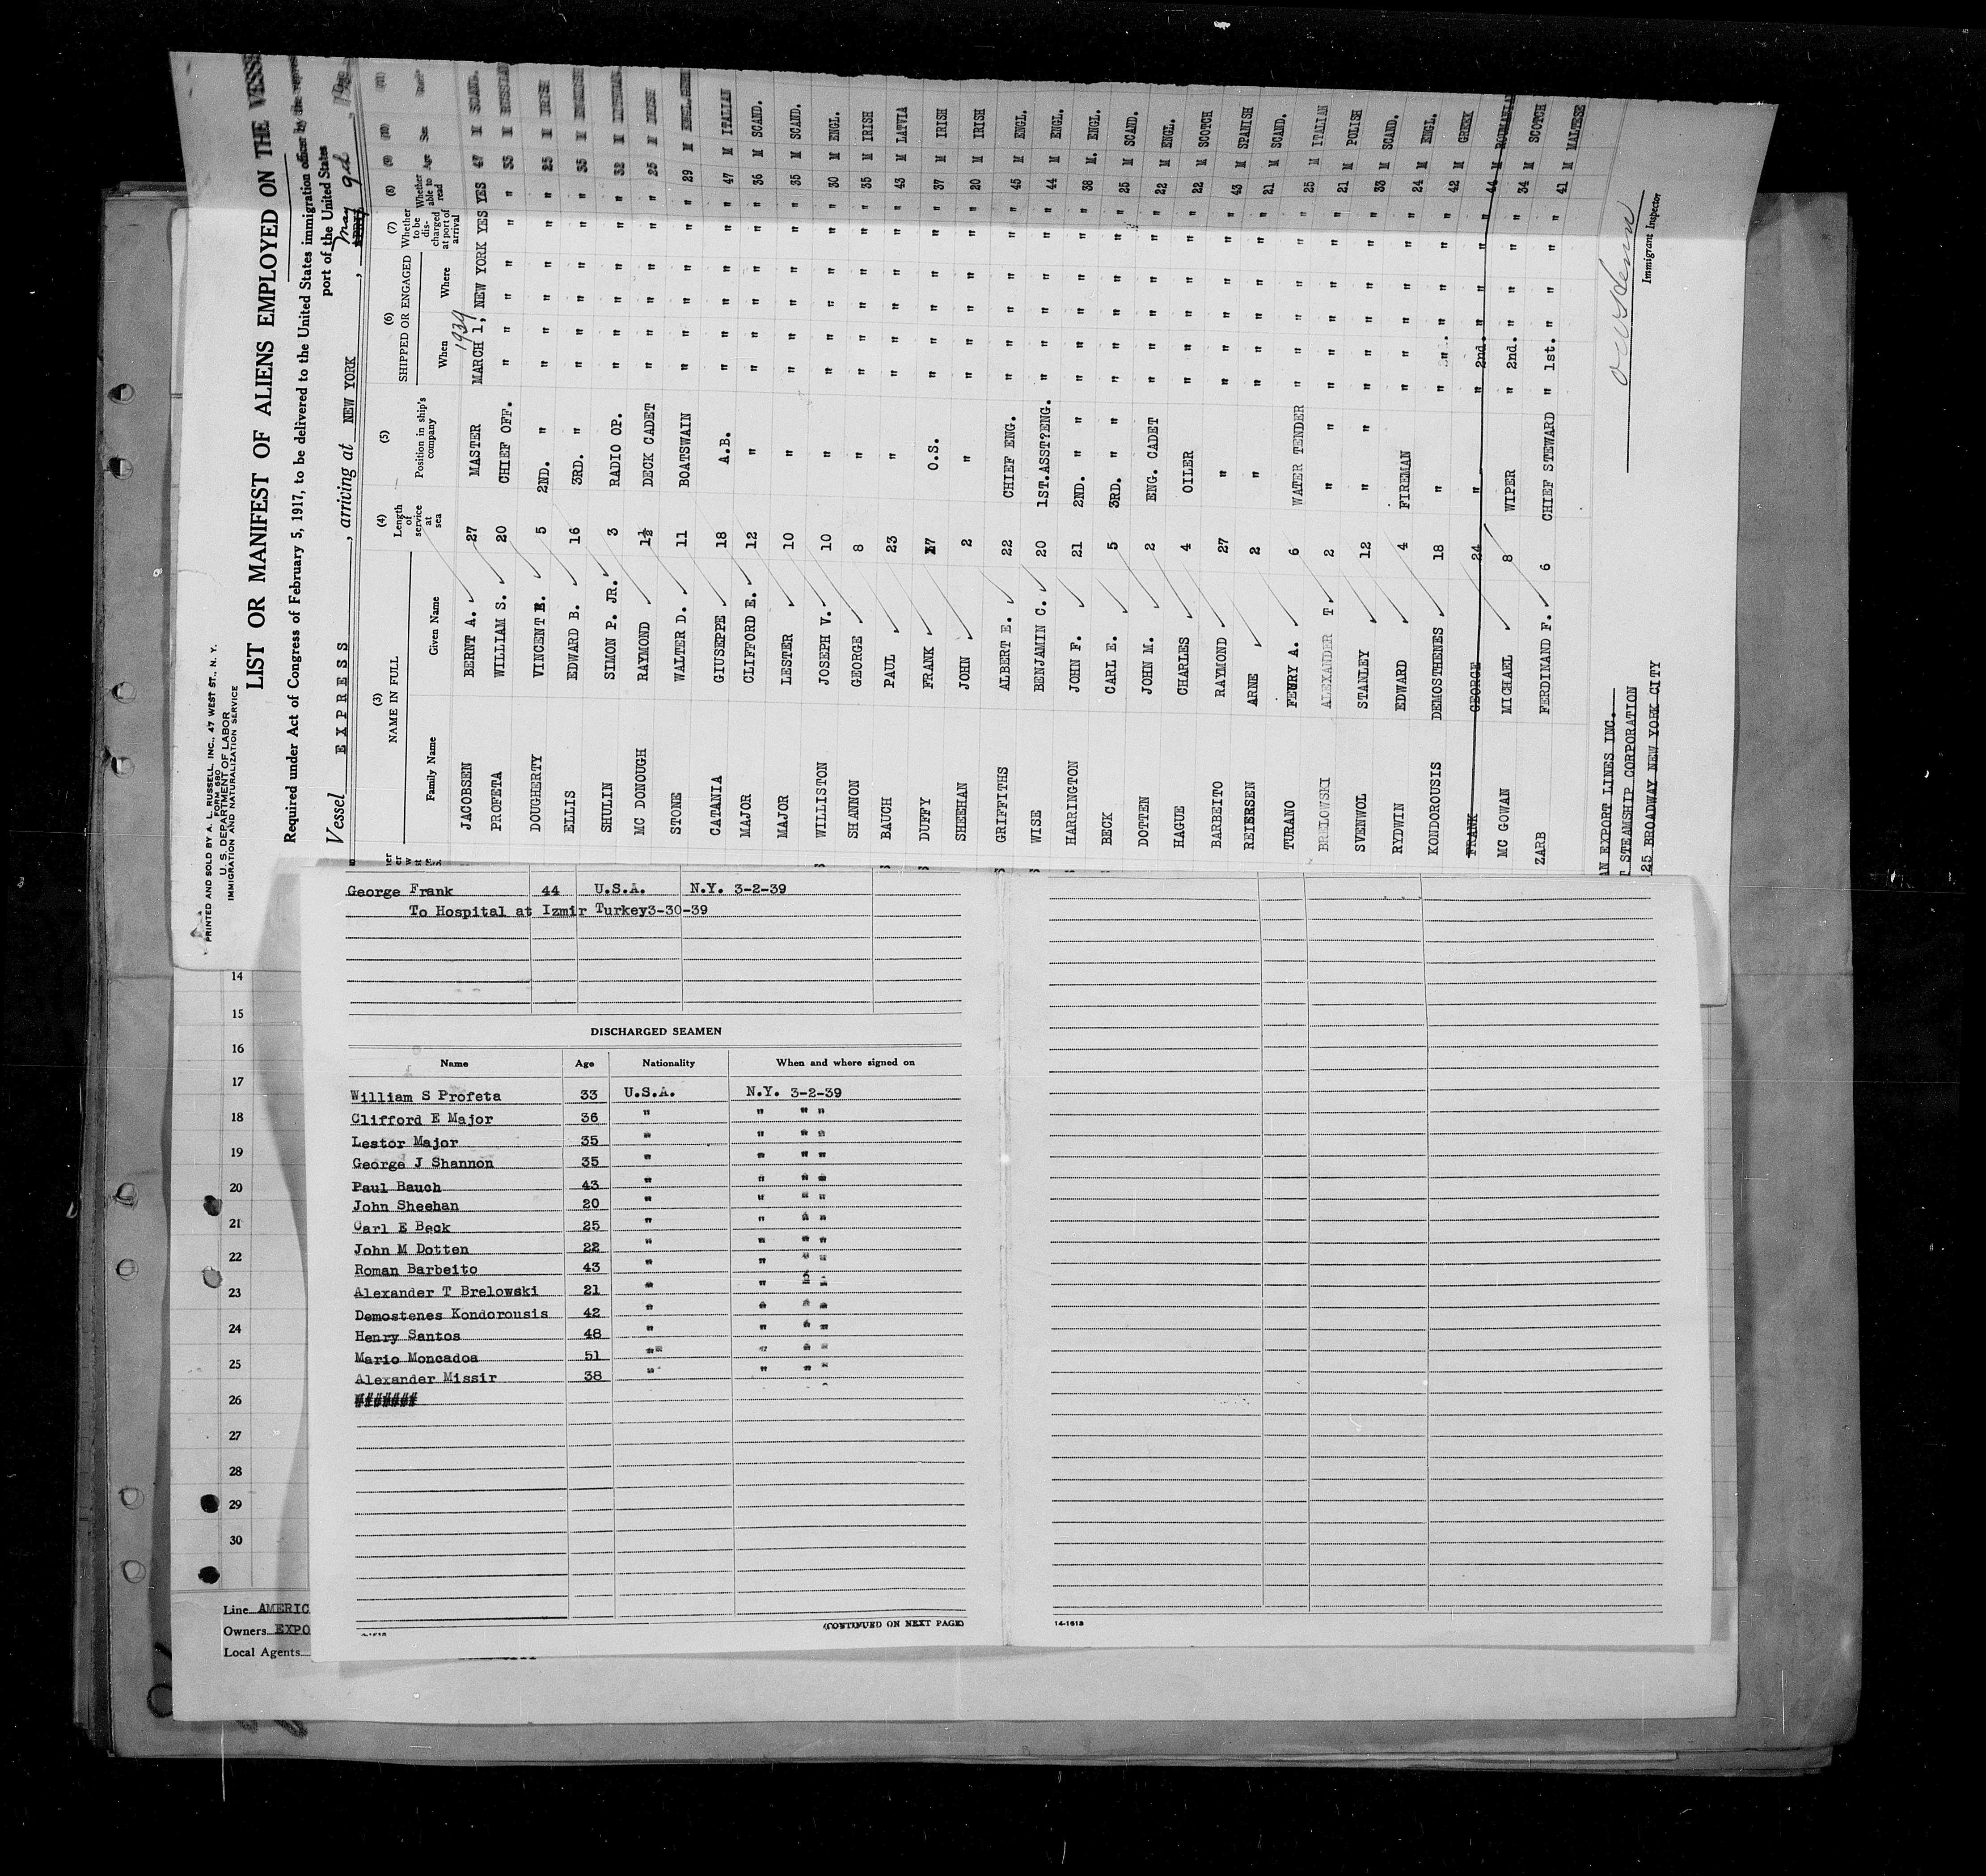 PRINTED AND SOLD BY A. L. RUSSELL, INC., 47 WEST ST., N. Y.
FORM 680
U. S. DEPARTMENT OF LABOR
IMMIGRATION AND NATURALIZATION SERVICE
LIST OR MANIFEST OF ALIENS EMPLOYED ON THE
Required under Act of Congress of February 5, 1917, to be delivered to the United States immigration officer by the
port of the United States
Vessel EXPRESS, arriving at NEW YORK, May 9d
(3) (4) (5) (6) (7) (8) (9) (10) (11)
NAME IN FULL Length of service at sea Position in ship's company SHIPPED OR ENGAGED Whether to be discharged at port of arrival Whether able to read Age Sex
Family Name Given Name When Where
1939
JACOBSEN BERNT A. 27 MASTER MARCH 1, NEW YORK YES YES 47 M SCAND.
PROFETA WILLIAM S. 20 CHIEF OFF. " " " " " " 33 M RUSSIAN
DOUGHERTY VINCENT E. 5 2ND. " " " " " " " 25 M IRISH
ELLIS EDWARD B. 16 3RD. " " " " " " " 35 M ENGLISH
SHULIN SIMON P. JR. 3 RADIO OP. " " " " " " 32 M
MC DONOUGH RAYMOND 1½ DECK CADET " " " " " " 25 M IRISH
STONE WALTER D. 11 BOATSWAIN " " " " " " 29 M
CATANIA GIUSEPPE 18 A.B. " " " " " " 47 M ITALIAN
MAJOR CLIFFORD E. 12 " " " " " " " 36 M SCAND.
MAJOR LESTER 10 " " " " " " " 35 M SCAND.
WILLISTON JOSEPH V. 10 " " " " " " " 30 M ENGL.
SHANNON GEORGE 8 " " " " " " " 35 M IRISH
BAUCH PAUL 23 " " " " " " " 43 M LATVIA
DUFFY FRANK 17 O.S. " " " " " " 37 M IRISH
SHEEHAN JOHN 2 " " " " " " " 20 M IRISH
GRIFFITHS ALBERT E. 22 CHIEF ENG. " " " " " " 45 M ENGL.
WISE BENJAMIN C. 20 1ST.ASST?ENG. " " " " " " 44 M ENGL.
HARRINGTON JOHN F. 21 2ND. " " " " " " " " 38 M. ENGL.
BECK CARL E. 5 3RD. " " " " " " " " 25 M SCAND.
DOTTEN JOHN M. 2 ENG. CADET " " " " " " 22 M ENGL.
HAGUE CHARLES 4 OILER " " " " " " 22 M SCOTCH
BARBEITO RAYMOND 27 " " " " " " " 43 M SPANISH
REIERSEN ARNE 2 " " " " " " " 21 M SCAND.
TURANO FEURY A. 6 WATER TENDER " " " " " " 25 M ITALIAN
BRELOWSKI ALEXANDER T 2 " " " " " " " " 21 M POLISH
SVENWOL STANLEY 12 " " " " " " " " 33 M SCAND.
RYDWIN EDWARD 4 FIREMAN " " " " " " 24 M ENGL.
KONDOROUSIS DEMOSTHENES 18 " " " " " " " 42 M GREEK
FRANK GEORGE 24 " " 2nd. " " " " 44 M ROUMANIAN
MC GOWAN MICHAEL 8 WIPER " 2nd. " " " " 34 M SCOTCH
ZARB FERDINAND F. 6 CHIEF STEWARD " 1st. " " " " 41 M MALTESE
AN EXPORT LINES INC.
T STEAMSHIP CORPORATION
25 BROADWAY NEW YORK CITY
Immigrant Inspector
George Frank 44 U.S.A. N.Y. 3-2-39
To Hospital at Izmir Turkey3-30-39
DISCHARGED SEAMEN
Name Age Nationality When and where signed on
William S Profeta 33 U.S.A. N.Y. 3-2-39
Clifford E Major 36 " " " "
Lestor Major 35 " " " "
George J Shannon 35 " " " "
Paul Bauch 43 " " " "
John Sheehan 20 " " " "
Carl E Beck 25 " " " "
John M Dotten 22 " " " "
Roman Barbeito 43 " " " "
Alexander T Brelowski 21 " " " "
Demostenes Kondorousis 42 " " " "
Henry Santos 48 " " " "
Mario Moncadoa 51 " " " "
Alexander Missir 38 " " " "
#######
(CONTINUED ON NEXT PAGE)
14-1613
14
15
16
17
18
19
20
21
22
23
24
25
26
27
28
29
30
Line AMERIC
Owners EXPO
Local Agents